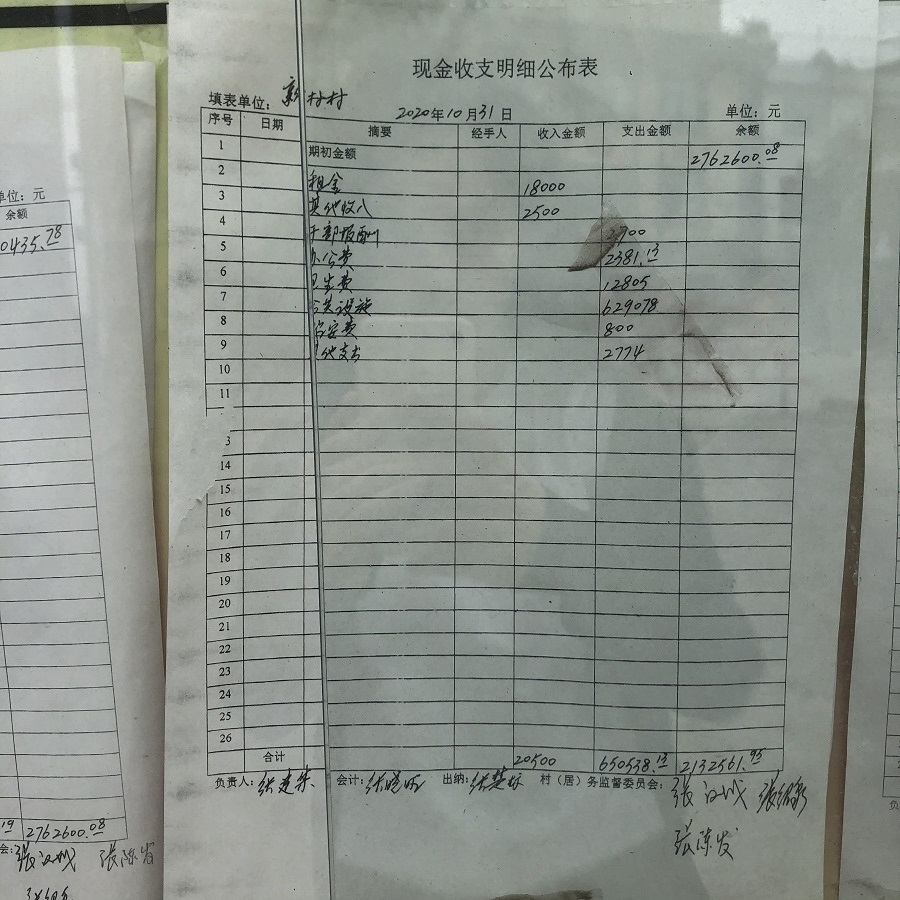 现金收支明细公布表
填表单位: 新村村 2020年10月31日 单位: 元
序号 日期 摘要 经手人 收入金额 支出金额 余额
1 期初金额 2762600.08
2 租金 18000
3 其他收入 2500
4 干部报酬 2700
5 办公费 2381.13
6 卫生费 12805
7 公共设施 629078
8 治安费 800
9 其他支出 2774
10
11
3
14
15
16
17
18
19
20
21
22
23
24
25
26
合计 20500 650538.13 2132561.95
负责人: 张建 会计: 张晓 出纳: 张楚 村(居)务监督委员会: 张汉城 张
张陈发
单位: 元
余额
0435.78
19 2762600.08
会: 张汉城 张陈发